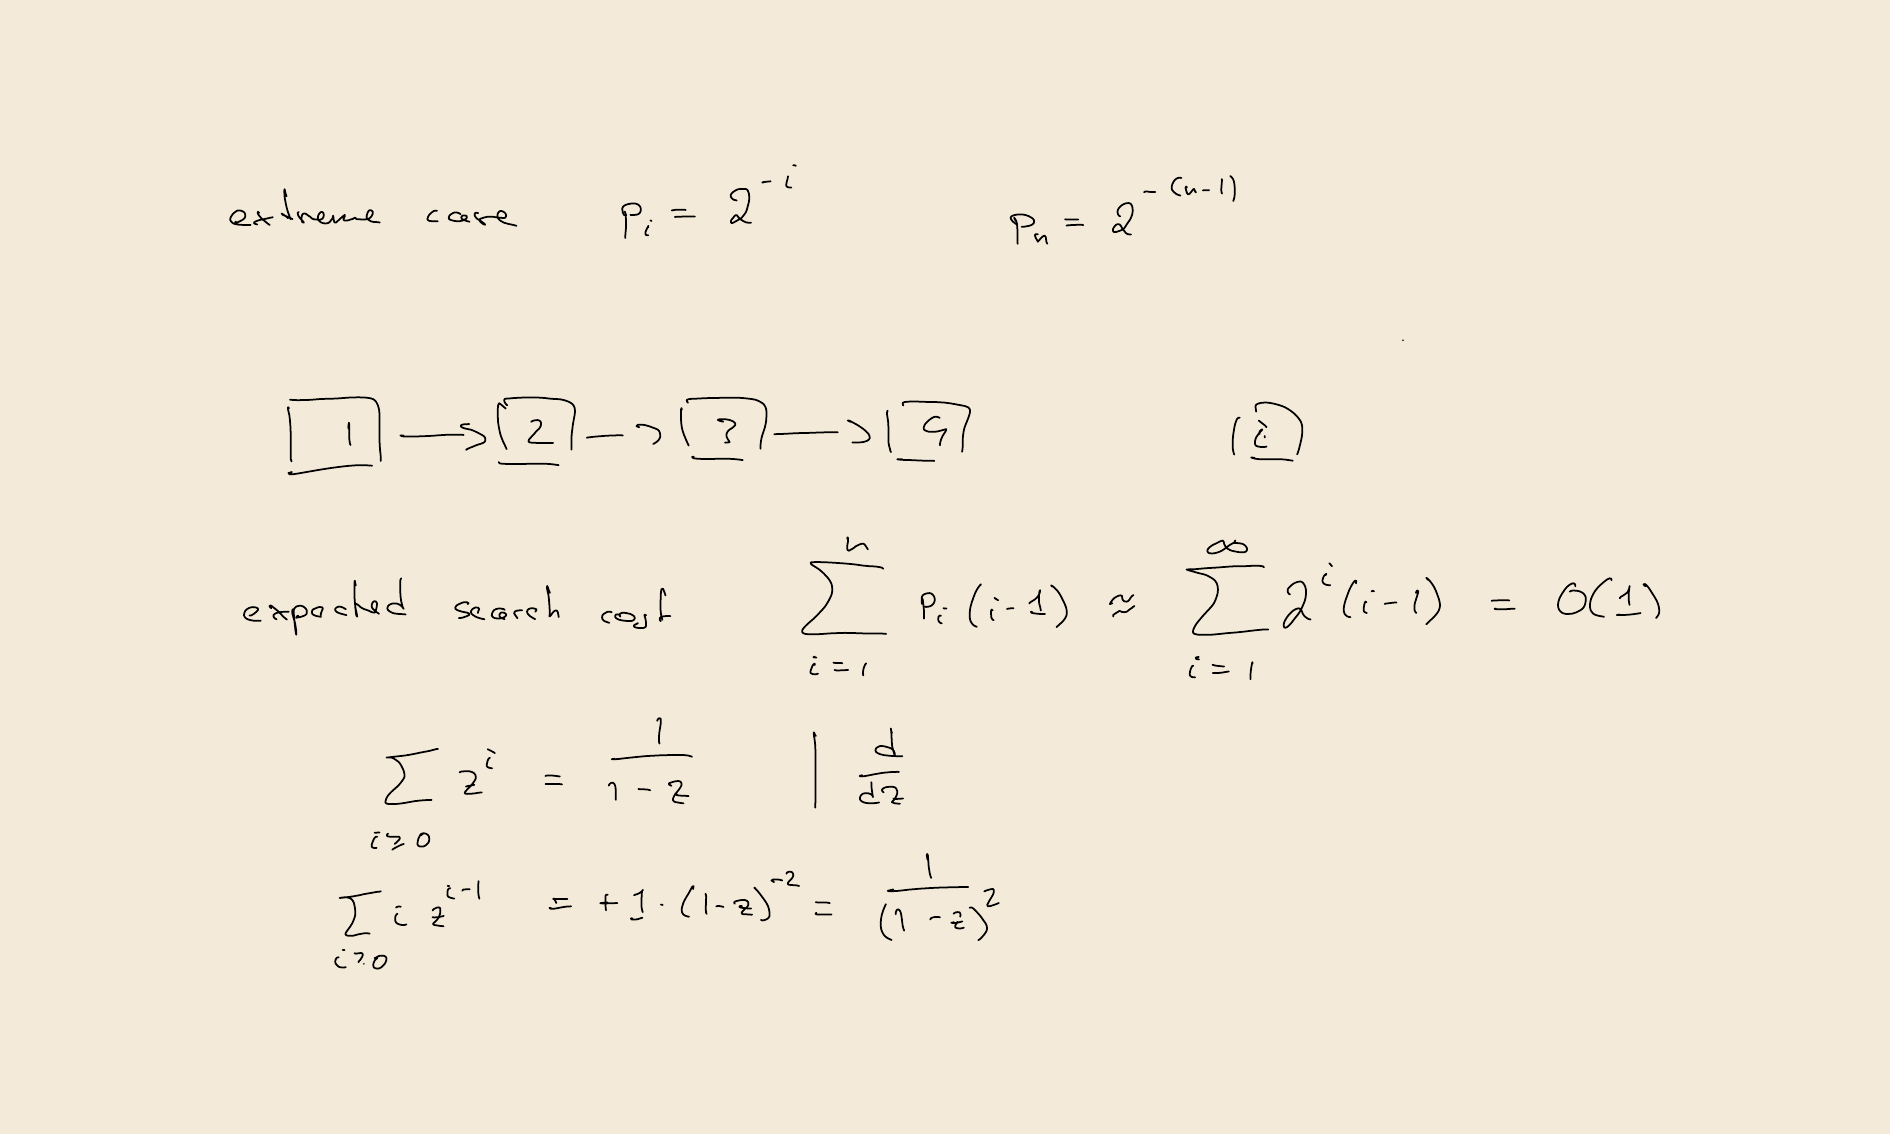 extreme case p_i = 2^{-i} p_n = 2^{-(n-1)}
1 → 2 → 3 → 4 i
expected search cost \sum_{i=1}^{n} p_i (i-1) ≈ \sum_{i=1}^{∞} 2^i (i-1) = O(1)
\sum_{i≥0} z^i = \frac{1}{1-z} | \frac{d}{dz}
\sum_{i≥0} i z^{i-1} = +1·(1-z)^{-2} = \frac{1}{(1-z)^2}